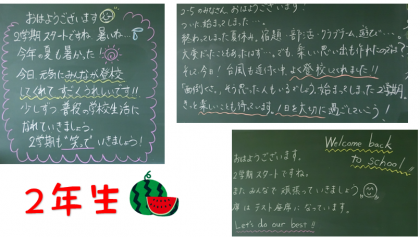 おはようございます
2学期スタートですね 暑いね…
今年の夏も暑かった!
今日 元気にみんなが登校
してくれて すごくうれしいです!!
少しずつ 普段の学校生活に
なれていきましょう。
2学期も"笑って"いきましょう!
2-5のみなさん、おはようございます!
ついに始まってしまった…。
終わってしまった夏休み。宿題・部活・クラブチーム、遊び…。
大変だったこともあったはず…。でも、楽しい思い出も作れたのでは?
そして今日!台風も近づく中、よく登校してくれました!!
きっと楽しいことも待っています。1日を大切に過ごしていこう!
Welcome back
to school!
おはようございます。
2学期スタートですね。
またみんなで頑張っていきましょう
席はテスト座席になっています。
Let's do our best!!
2年生